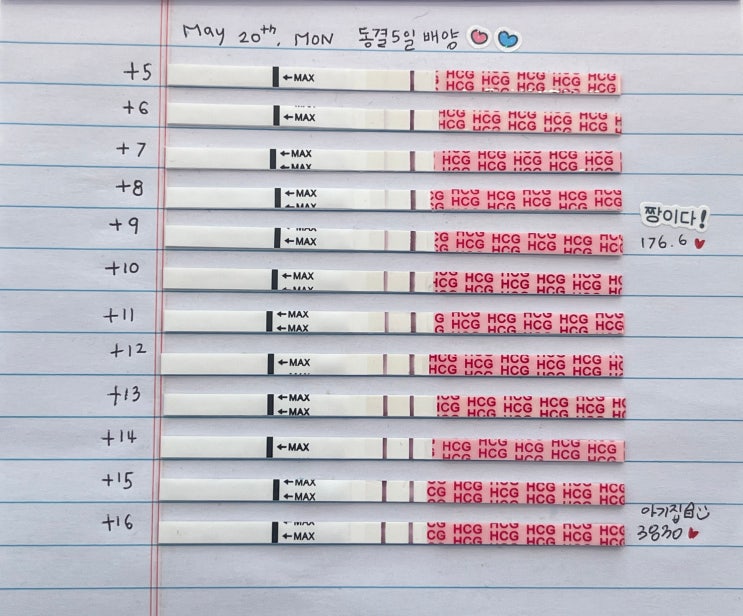 May 20th, MON 동결5일 배양
+5 ←MAX HCG HCG HCG HCG HCG
HCG HCG HCG HCG HCG
+6 ←MAX HCG HCG HCG HCG HCG
HCG HCG HCG HCG
+7 ←MAX HCG HCG HCG HCG HCG
←MAX
+8 ←MAX HCG HCG HCG HCG HCG
←MAX HCG HCG HCG HCG HCG
짱이다!
+9 ←MAX HCG HCG HCG HCG HCG 176.6
+10 ←MAX HCG HCG HCG HCG HCG
←MAX
+11 ←MAX HCG HCG HCG HCG
←MAX HCG HCG HCG HCG HCG
+12 ←MAX HCG HCG HCG HCG HCG
HCG HCG HCG HCG HCG
+13 ←MAX HCG HCG HCG HCG HCG
←MAX HCG HCG HCG HCG HCG
+14 ←MAX HCG HCG HCG HCG HCG
+15 ←MAX HCG HCG HCG HCG HCG
←MAX HCG HCG HCG HCG HCG
아기집
+16 ←MAX HCG HCG HCG HCG HCG 3830
←MAX HCG HCG HCG HCG HCG